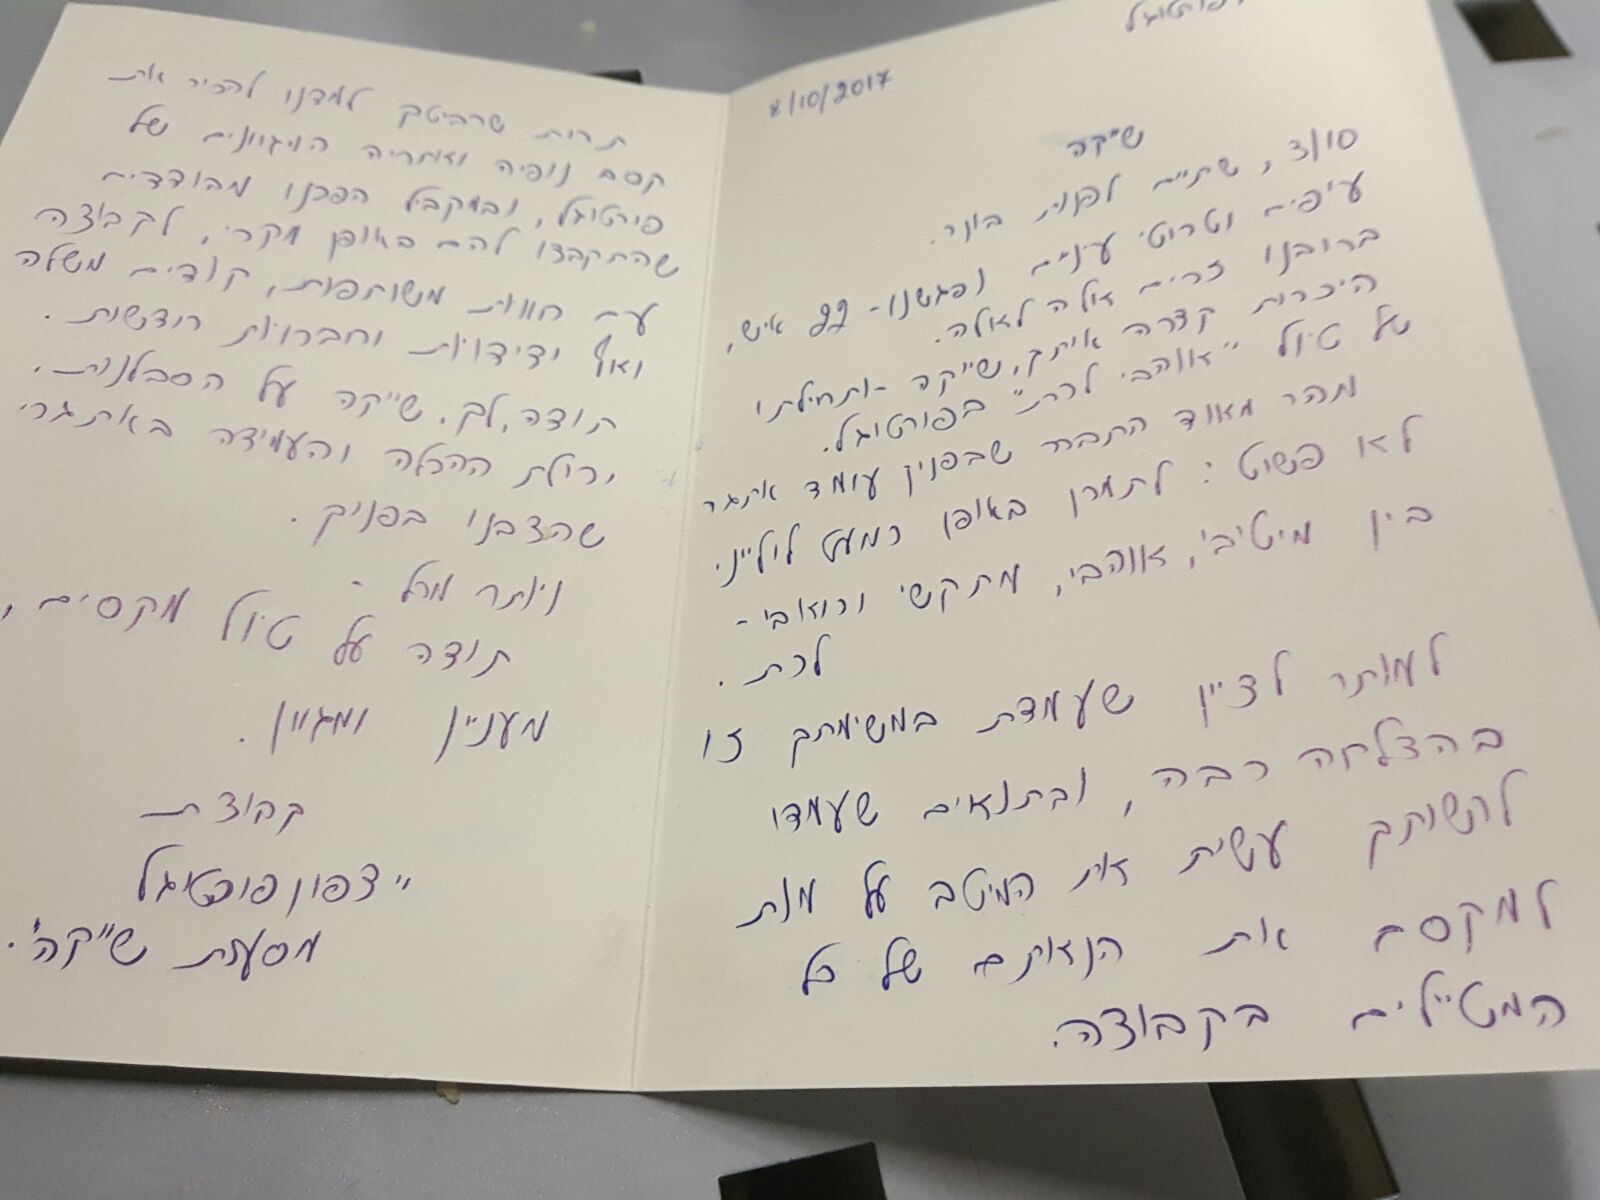 פורטוגל
8/10/2017
שייקה
סוף, שתיים לפנות בוקר.
עייפים וטרוטי עיניים נפגשנו - 22 איש,
ברובנו זרים אלה לאלה.
היכרות קצרה איתך, שייקה - ותחילתו
של טיול "אוהבי לכת" בפורטוגל.
מהר מאוד התברר שבפניך עומד אתגר
לא פשוט: לתמרן באופן כמעט לולייני
בין מיטיבי, אוהבי, מתקשי וכואבי -
לכת.
למותר לציין שעמדת במשימתך זו
בהצלחה רבה, ובתנאים שעמדו
לרשותך עשית את המיטב על מנת
למקסם את הנאתם של כל
המטיילים בקבוצה.
תרית שרביטך למדנו להכיר את
קסם נופיה ואתריה המגוונים של
פורטוגל, ובמקביל הפכנו מבודדים
שהתקבצו להם באופן מקרי, לקבוצה
עם חוויות משותפות, קודים משלה
ואף ידידויות וחברויות חדשות.
תודה לך, שייקה על הסבלנות,
יכולת ההכלה והעמידה באתגרי
שהצבנו בפניך.
ויותר מכל -
תודה על טיול מקסים,
מעניין ומגוון.
קבוצת
"צפון פורטוגל
מסעות שייקה".